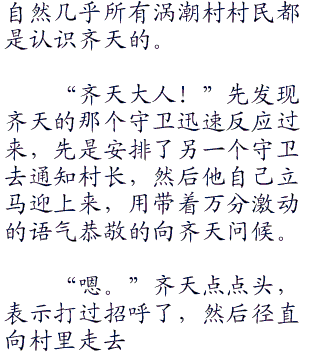 自然几乎所有涡潮村村民都
是认识齐天的。
“齐天大人！”先发现
齐天的那个守卫迅速反应过
来，先是安排了另一个守卫
去通知村长，然后他自己立
马迎上来，用带着万分激动
的语气恭敬的向齐天问候。
“嗯。”齐天点点头，
表示打过招呼了，然后径直
向村里走去